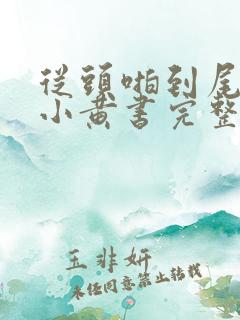 從頭啪到尾
小黃書完整
王非妍
未经同意禁止转载